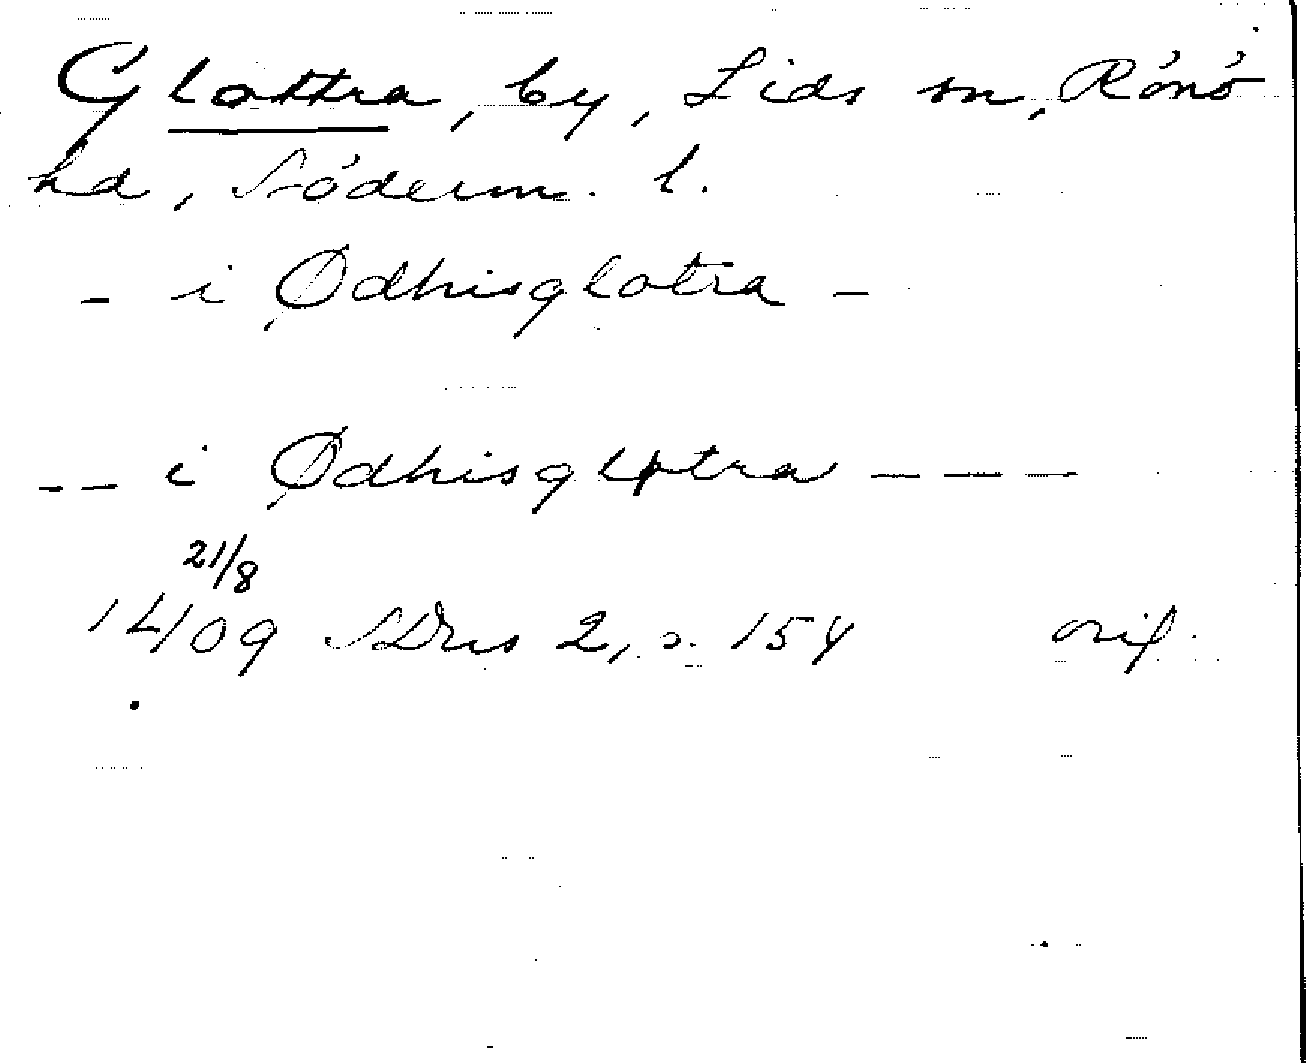 Glottra, by, Lids sn, Rönö
hd, Söderm. l.
- i Ødhisglotra -
-- i Ødhisglotra ----
21/8
1409 SDns 2, s. 154 orig.